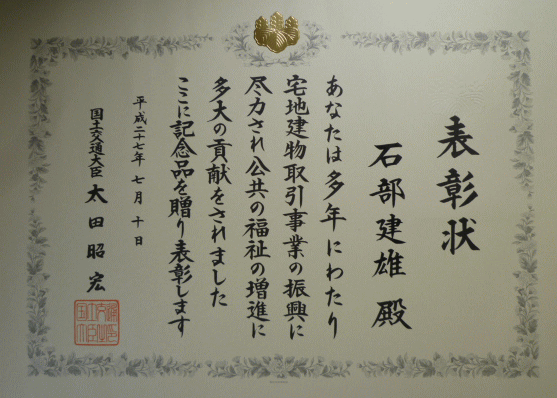 表彰状
石部建雄 殿
あなたは多年にわたり
宅地建物取引事業の振興に
尽力され公共の福祉の増進に
多大の貢献をされました
ここに記念品を贈り表彰します
平成二十七年 七月 十日
国土交通大臣 太田昭宏